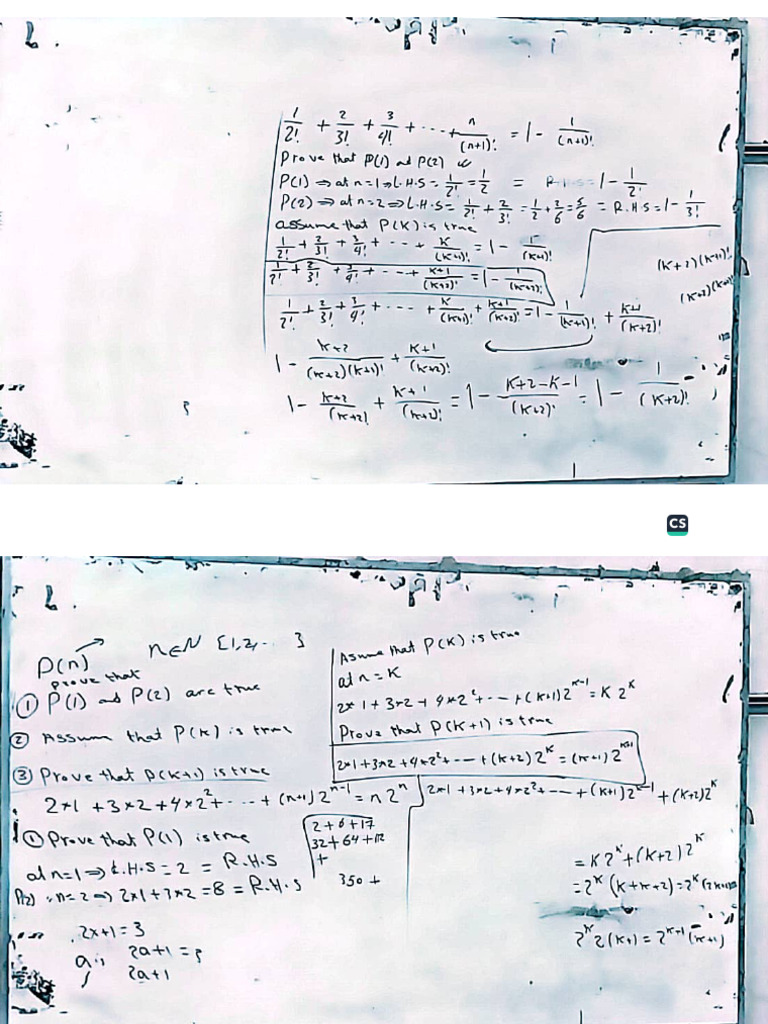 1/2! + 2/3! + 3/4! + ... + n/(n+1)! = 1 - 1/(n+1)!
Prove that P(1) ad P(2) is
P(1) ⇒ at n=1 ⇒ L.H.S = 1/2! = 1/2 = R.H.S = 1 - 1/2!
P(2) ⇒ at n=2 ⇒ L.H.S = 1/2! + 2/3! = 1/2 + 2/6 = 5/6 = R.H.S = 1 - 1/3!
assume that P(K) is true
1/2! + 2/3! + 3/4! + ... + K/(K+1)! = 1 - 1/(K+1)!
1/2! + 2/3! + 3/4! + ... + K+1/(K+2)! = 1 - 1/(K+2)!
1/2! + 2/3! + 3/4! + ... + K/(K+1)! + K+1/(K+2)! = 1 - 1/(K+1)! + K+1/(K+2)!
(K+2)(K+1)!
1 - K+2/(K+2)(K+1)! + K+1/(K+2)!
1 - K+2/(K+2)! + K+1/(K+2)! = 1 - K+2-K-1/(K+2)! = 1 - 1/(K+2)!
CS
P(n) n∈N {1,2,... }
prove that
① P(1) ad P(2) are true
② Assume that P(K) is true
③ Prove that P(K+1) is true
2×1 + 3×2 + 4×2² + ... + (n+1) 2ⁿ⁻¹ = n 2ⁿ
① Prove that P(1) is true
at n=1 ⇒ L.H.S = 2 = R.H.S
P(2) n=2 ⇒ 2×1 + 3×2 = 8 = R.H.S
2x+1 = 3
2a+1
Assume that P(K) is true
at n=K
2×1 + 3×2 + 4×2² + ... + (K+1) 2ᴷ⁻¹ = K 2ᴷ
Prove that P(K+1) is true
2×1 + 3×2 + 4×2² + ... + (K+2) 2ᴷ = (K+1) 2ᴷ⁺¹
2×1 + 3×2 + 4×2² + ... + (K+1) 2ᴷ⁻¹ + (K+2) 2ᴷ
32 + 64 +
+
350 +
= K 2ᴷ + (K+2) 2ᴷ
= 2ᴷ (K+K+2) = 2ᴷ
2ᴷ 2(K+1) = 2ᴷ⁺¹ (K+1)